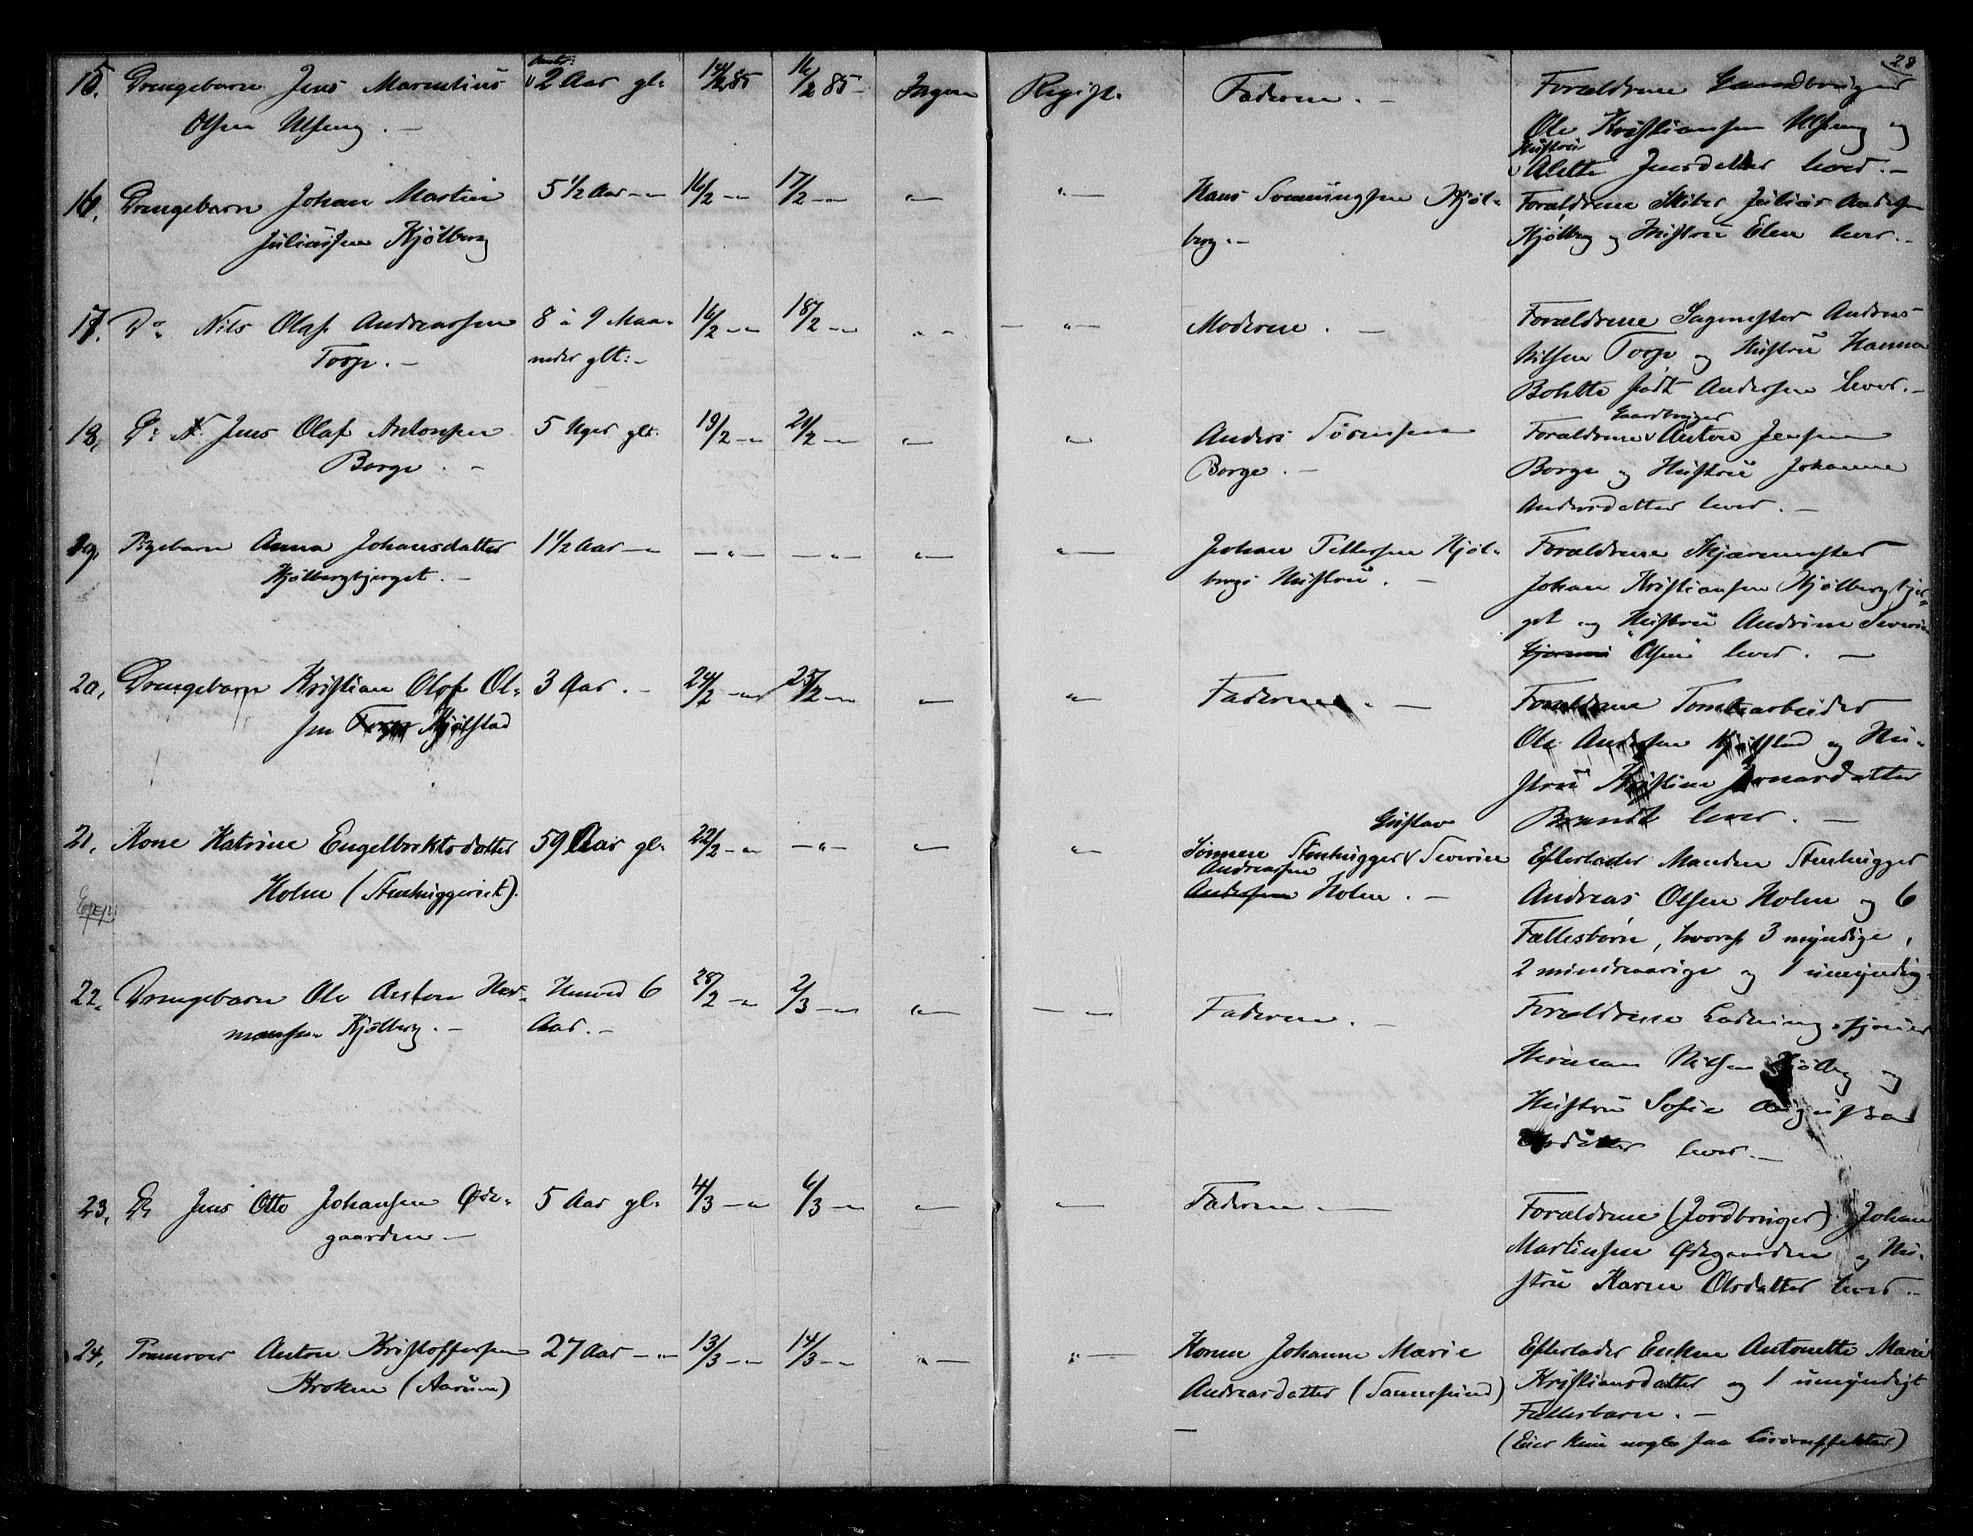 28
15. Drengebarn Jens Marentius 2 Aar gl: 14/2 85 16/2 85 Ingen Regist. Faderen. - Forældrene Gaardbruger
Olsen Ulfeng. - Ole Kristiansen Ulfeng og
Hustru
Alette Jensdatter lever. -
16. Drengebarn Johan Martin 5 1/2 Aar -"- 16/2 -"- 17/2 -"- -"- -"- Hans Svenningsen Kjøl- Forældrene Skibr Julius Andersen
Juliussen Kjølberg berg. - Kjølberg og Hustru Elen lever. -
17. Do Nils Olaf Andreassen 8 à 9 Maa- 16/2 -"- 18/2 -"- -"- -"- Moderen. - Forældrene Sagmester Andreas
Torp. - neder glt: - Nilsen Torp og Hustru Hanna
Bolette født Andersen lever. -
Gaardbruger
18. Do Jens Olaf Antonsen 5 Uger glt. 19/2 -"- 21/2 -"- -"- " Anders Sørensen Forældrene Anton Jensen
Borge. - Borge. - Borge og Hustru Johanne
Andersdatter lever. -
19. Pigebarn Anna Johansdatter 1 1/2 Aar -"- -"- -"- -"- -"- Johan Pettersen Kjøl- Forældrene Skjærmester
Kjølbergbjerget. - bergs Hustru. - Johan Kristiansen Kjølbergbjer-
get og Hustru Andrine Severine
Olsen lever. -
20. Drengebarn Kristian Olof Ol- 3 Aar. - 24/2 -"- 25/2 -"- -"- " Faderen. - Forældrene Tomtearbeider
sen Torp Kjølstad Ole Andersen Kjølstad og Hu-
stru Kristine Jonasdatter
Brandt lever. -
Gustav
21. Kone Katrine Engelbrektsdatter 59 Aar gl: 22/2 -"- -"- -"- " Sønnen Stenhugger Severin Efterlader Manden Stenhugger
Andreassen
Holm (Stenhuggeriet). Andersen Holm. - Andreas Olsen Holm og 6
Fællesbørn, hvoraf 3 myndige,
2 mindreaarige og 1 umyndig.
22. Drengebarn Ole Anton Her- Henved 6 28/2 -"- 2/3 -"- -"- -"- Faderen. - Forældrene Ladningsfører
mansen Kjølberg. - Aar. - Herman Nilsen Kjølberg og
Hustru Sofie Augusta
Olsdatter lever. -
23. Do Jens Otto Johansen Øde- 5 Aar gl: 4/3 -"- 6/3 -"- -"- -"- Faderen. - Forældrene (Jordbruger) Johan
gaarden - Martinsen Ødegaarden og Hu-
stru Karen Olsdatter lever. -
24. Pramroer Anton Kristoffersen 27 Aar -"- 13/3 -"- 14/3 -"- -"- -"- Konen Johanne Marie Efterlader Enken Antonette Marie
Kroken (Aarum) Andreasdatter (Sannesund) Kristiansdatter og 1 umyndigt
- Fællesbarn. -
(Eier kun nogle faa Løsøreffekter)